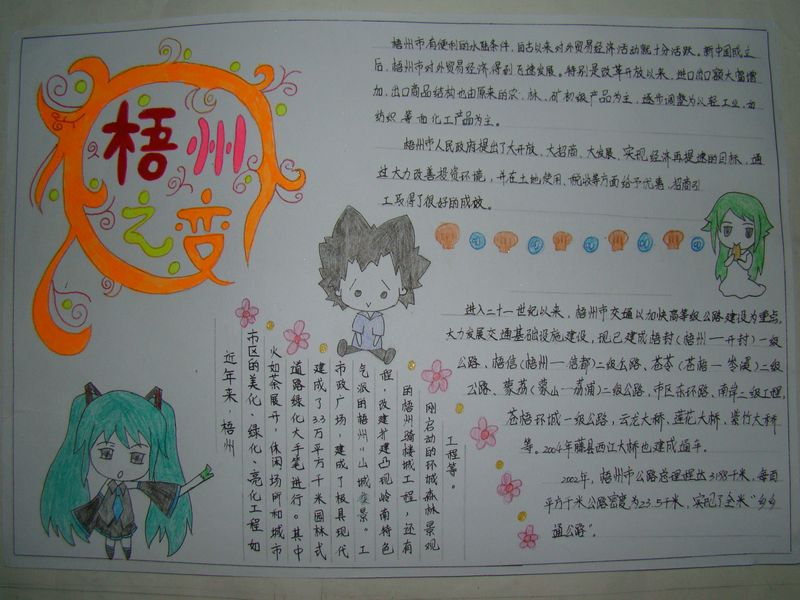 梧州
之变
梧州市有便利的水陆条件，自古以来对外贸易经济活动就十分活跃。新中国成立
后，梧州市对外贸易经济得到飞速发展。特别是改革开放以来，进口出口额大幅增
加，出口商品结构也由原来的农、林、矿初级产品为主，逐步调整为以轻工业，如
纺织等面化工产品为主。
梧州市人民政府提出了大开放、大招商、大发展、实现经济再提速的目标，通
过大力改善投资环境，并在土地使用、税收等方面给予优惠，招商引
工取得了很好的成效。
进入二十一世纪以来，梧州市交通以加快高等级公路建设为重点，
大力发展交通基础设施建设，现已建成梧封（梧州——开封）一级
公路、梧信（梧州——信都）二级公路、苍苓（苍梧——岑溪）二级
公路、蒙荔（蒙山—荔浦）二级公路、市区东环路、南岸二级工程，
苍梧环城一级公路，云龙大桥、莲花大桥、紫竹大桥
等。2004年藤县西江大桥也建成通车。
2002年，梧州市公路总理程达3198千米，每百
平方千米公路密度为23.5千米，实现了全米“乡乡
通公路”。
近年来，梧州
市区的美化、绿化、亮化工程如
火如荼展开，休闲场所和城市
道路绿化大手笔进行。其中
建成了3.3万平方千米园林式
市政广场，建成了极具现代
气派的梧州“山城夜景”工
程，改建扩建凸现岭南特色
的梧州骑楼城工程，还有
刚启动的环城森林景观
工程等。